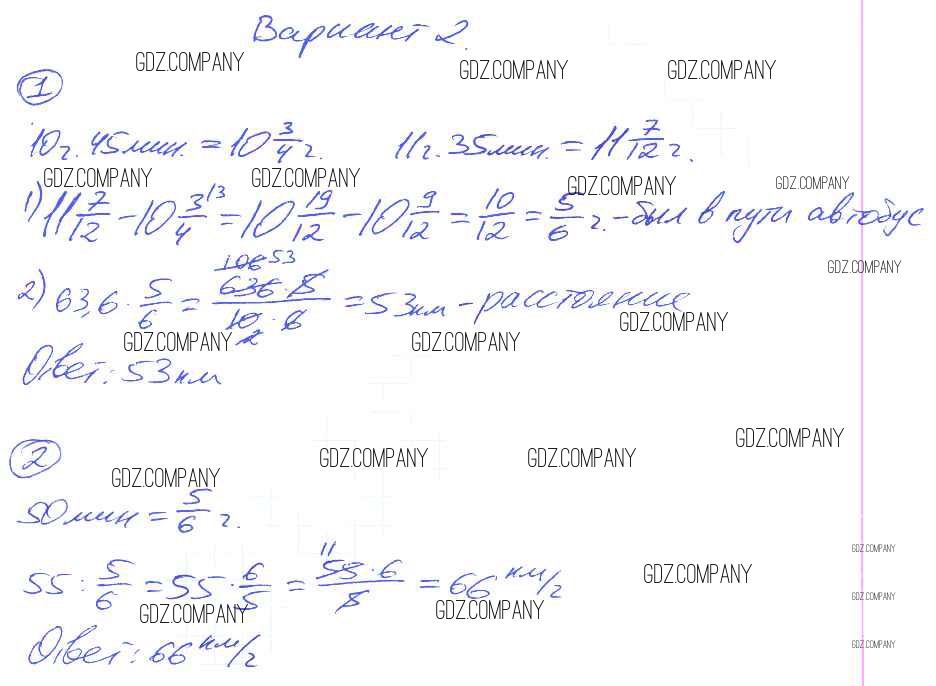 Вариант 2.
GDZ.COMPANY GDZ.COMPANY GDZ.COMPANY
1
10ч. 45мин. = 10 3/4 ч. 11ч. 35мин. = 11 7/12 ч.
GDZ.COMPANY GDZ.COMPANY GDZ.COMPANY GDZ.COMPANY
1) 11 7/12 - 10 3/4 \3 = 10 19/12 - 10 9/12 = 10/12 = 5/6 ч. - был в пути автобус
GDZ.COMPANY
106 53
2) 63,6 · 5/6 = 636 · 5 / 10 · 6 = 53км - расстояние
2
GDZ.COMPANY GDZ.COMPANY GDZ.COMPANY
Ответ: 53 км
2
GDZ.COMPANY GDZ.COMPANY GDZ.COMPANY GDZ.COMPANY
50 мин = 5/6 ч.
GDZ.COMPANY
11
55 : 5/6 = 55 · 6/5 = 55 · 6 / 5 = 66 км/ч
GDZ.COMPANY GDZ.COMPANY GDZ.COMPANY GDZ.COMPANY
Ответ: 66 км/ч
GDZ.COMPANY